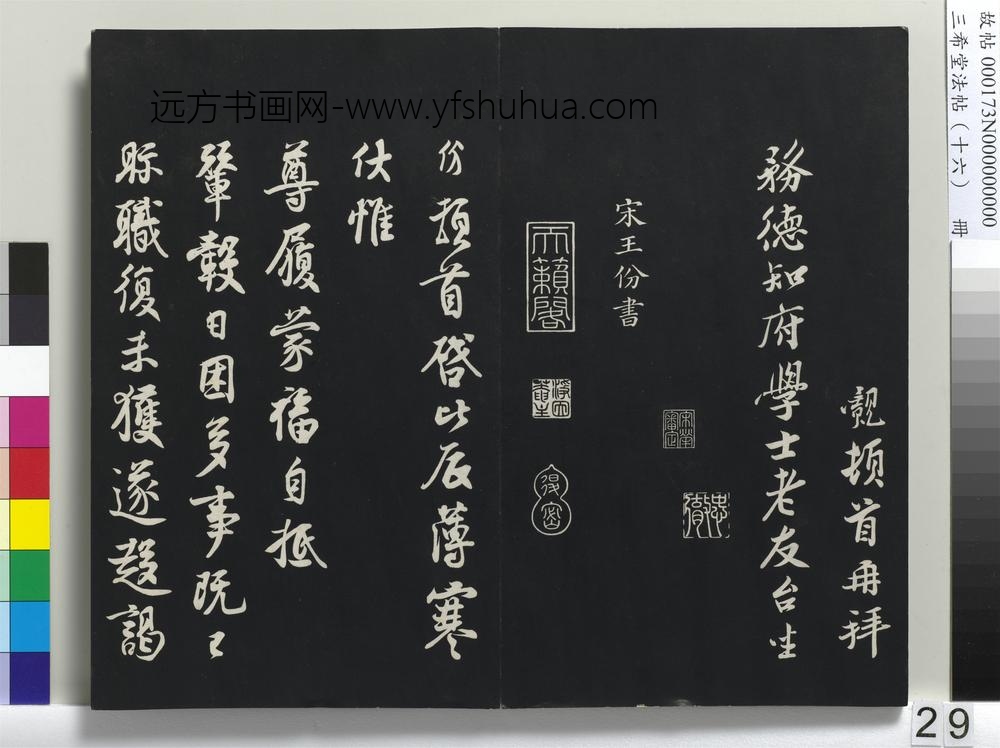 覿頓首再拜
務德知府學士老友台坐
宋王份書
天籟閣
份頓首啓比辰薄寒
伏惟
尊履蒙福自抵
輦轂日困多事既已
際職復未獲遂趍謁
远方书画网-www.yfshuhua.com
故帖 000173N000000000
三希堂法帖（十六） 冊
29